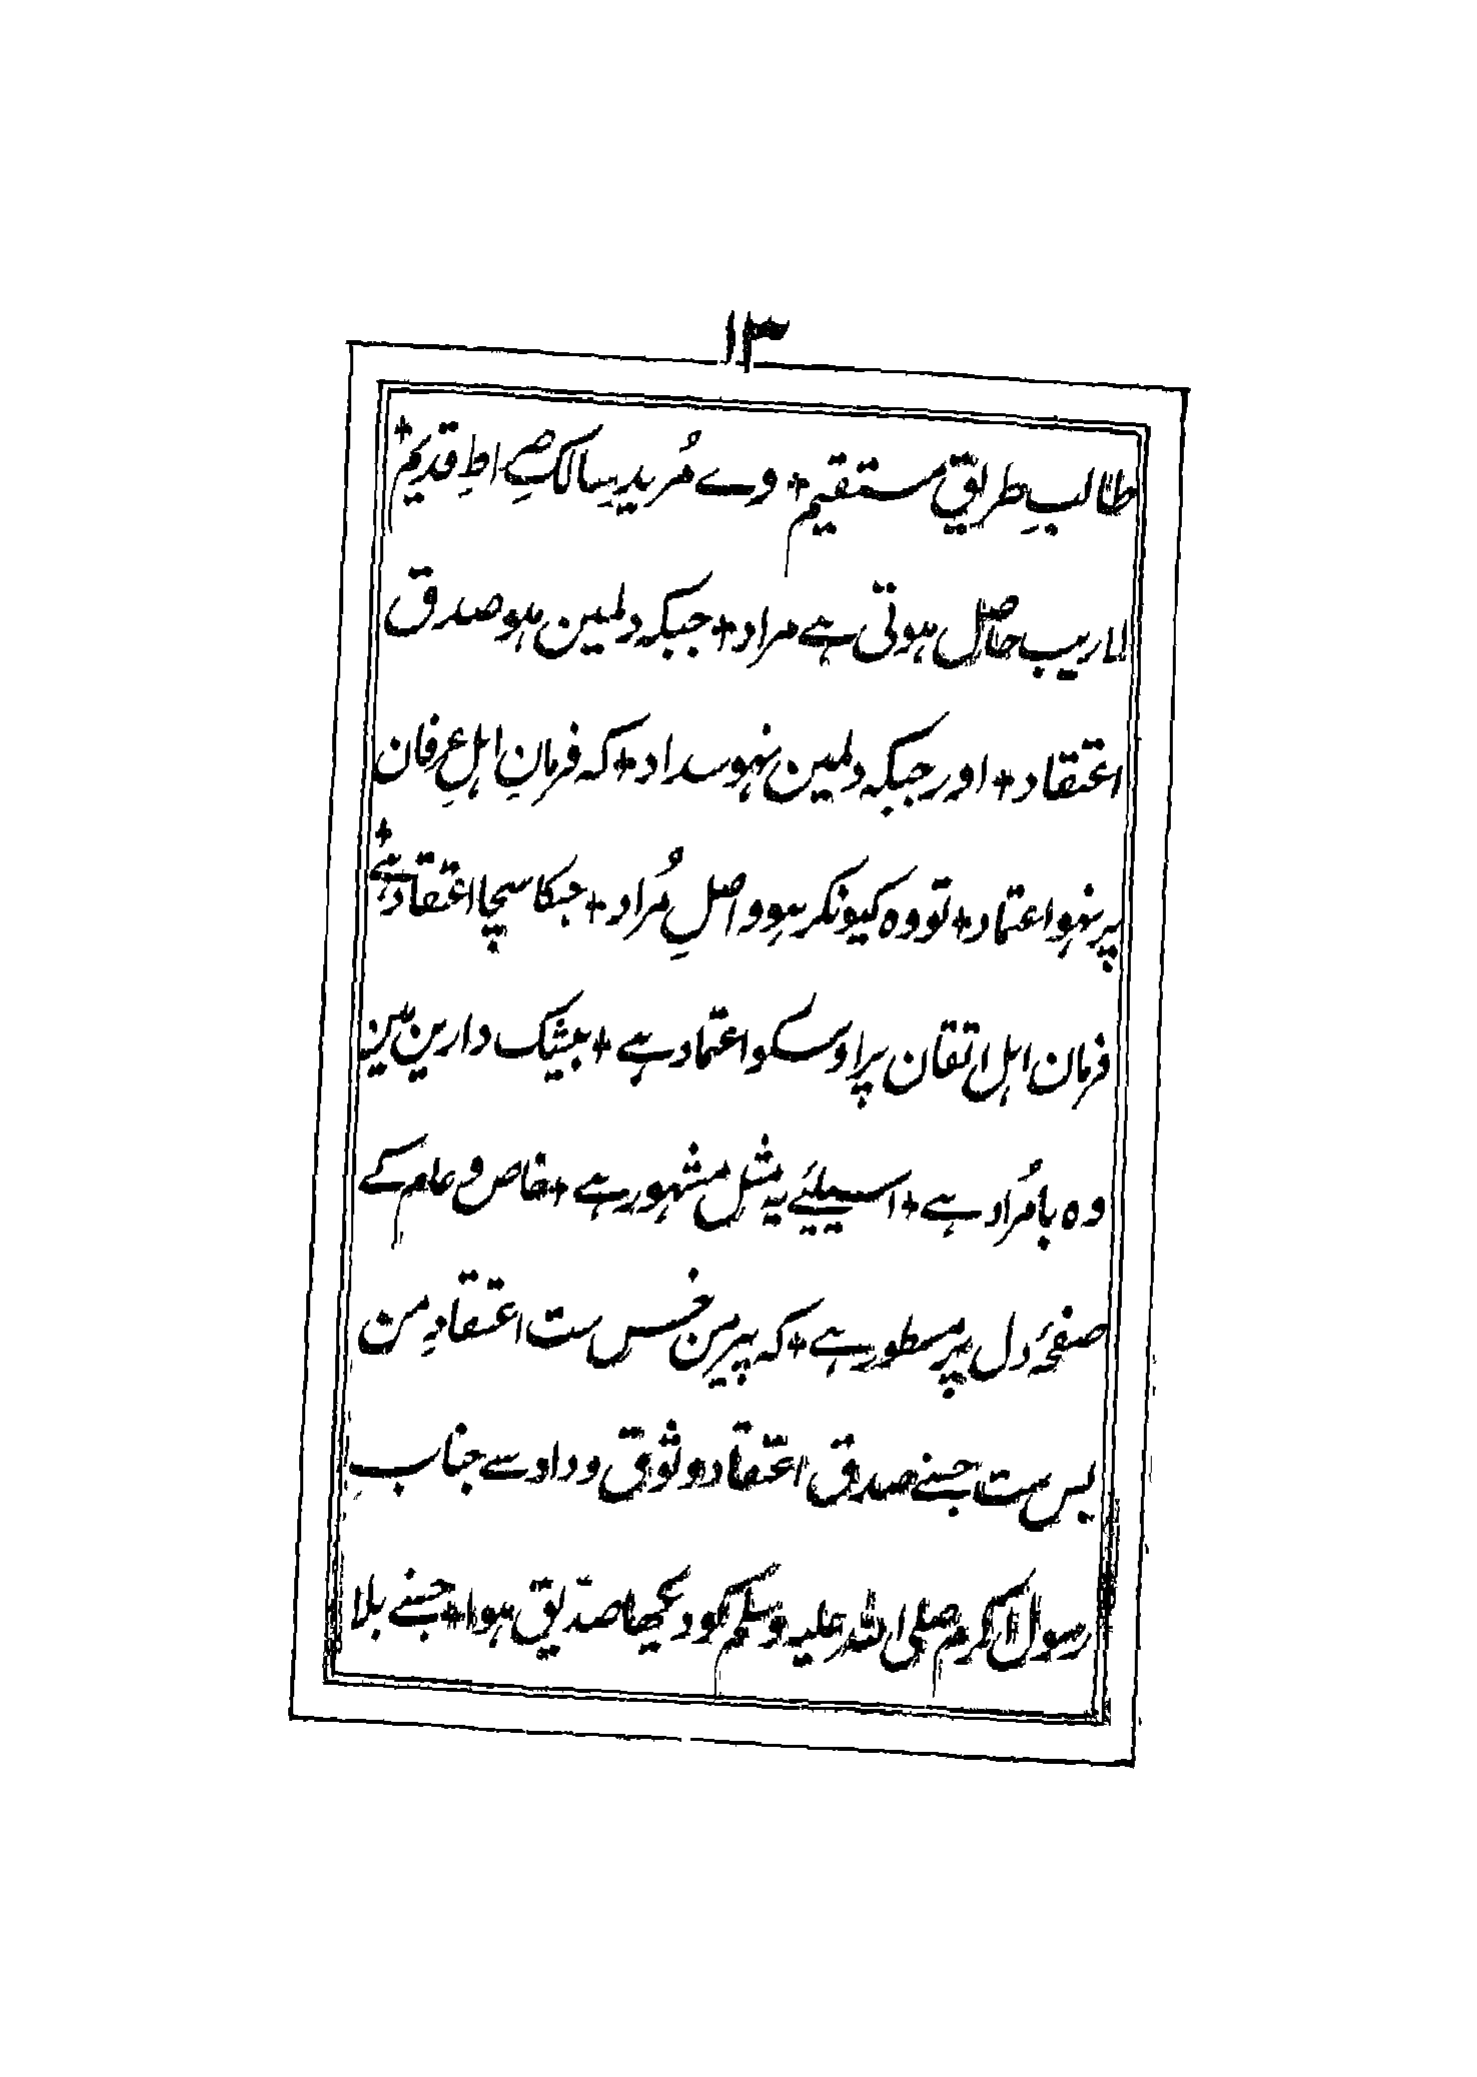 ۱۳
طالبِ طریقِ مستقیم + وے مُریدِ سالکِ صِراطِ قدیم +
لاریب حاصل ہوتی ہے مراد + جبکہ دلمین ہو صدق
اعتقاد + اور جبکہ دلمین نہو سداد + کہ فرمانِ اہلِ عِرفان
پر نہو اعتماد + تو وہ کیونکر ہو واصلِ مُراد + جسکا سچا اعتقاد ہے +
فرمان اہل اتقان پر اوسکو اعتماد ہے + بیشک دارین مین
وہ بامُراد ہے + اسیلیئے یہ مثل مشہور ہے + خاص و عام کے
صفحۂ دل پر مسطور ہے + کہ پیر من خس ست اعتقادِ من
بس ست جسنے صدق اعتقاد و ثوق و داد سے جنابِ
رسول اکرم صلی اللہ علیہ وسلم کو دیکھا صدّیق ہوا + جسنے بلا